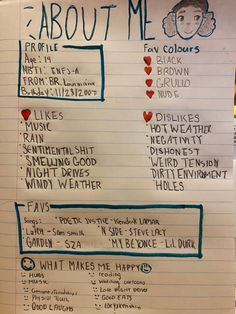 ABOUT ME
PROFILE
Age: 14
MBTI: INFJ-A
FROM: BR, Louisiana
Birthday: 11/23/2007
Fav Colours
BLACK
BROWN
GRULLO
NUDE
LIKES
'MUSIC
'RAIN
SENTIMENTAL SHIT
'SMELLING GOOD
'NIGHT DRIVES
'WINDY WEATHER
DISLIKES
'HOT WEATHER
'NEGATIVITY
'DISHONEST
'WEIRD TENSION
DIRTY ENVIRONMENT
HOLES
FAVS
Songs - 'POETIC JUSTICE - Kendrick LAMAR
LATCH - Sam smith 'N SIDE - STEVE LACY
GARDEN - SZA 'MY BEYONCE - LIL DURK
WHAT MAKES ME HAPPY
HUGS
MUSIC
Physical Touch
GOOD LAUGHS
reading
watching cartoons
Late night drives
GOOD EATS